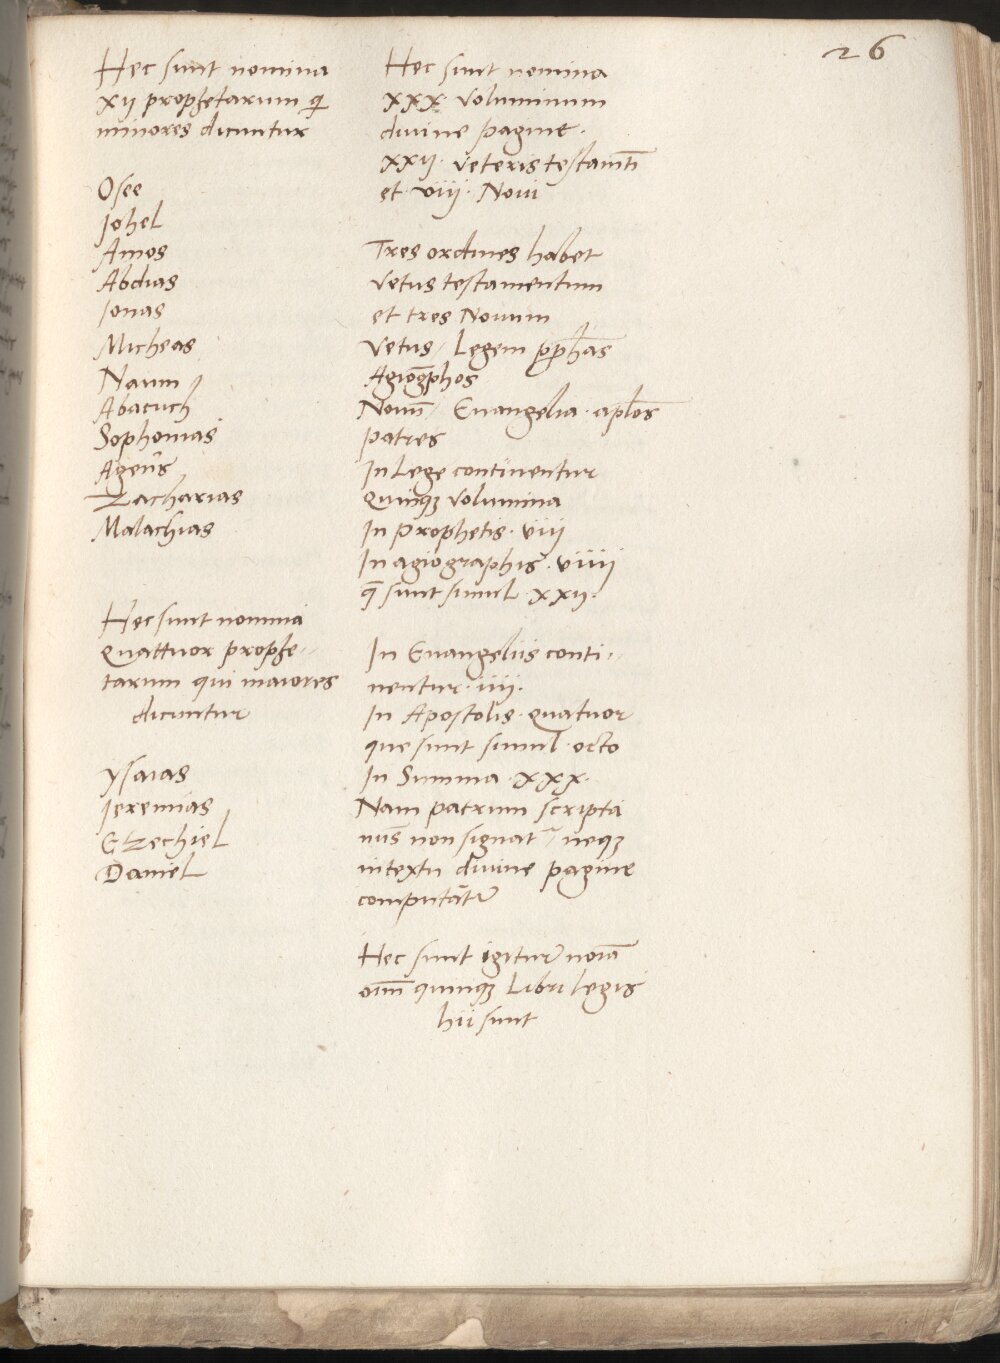 26
Hec sunt nomina
xij prophetarum q̃
minores dicuntur
Osee
Johel
Amos
Abdias
Jonas
Micheas
Naum
Abacuch
Sophonias
Ageũs
Zacharias
Malachias
Hec sunt nomina
quattuor prophe-
tarum qui maiores
dicuntur
ysaias
Ieremias
Ezechiel
Daniel
Hec sunt nomina
xxx voluminum
divine pagine.
xxij. veteris testamẽti
et. viij. Noui
Tres ordines habet
vetus testamentum
et tres Nouum
Vetus / Legem ꝓph̃as
Agiog̃phos
Nouũ / Euangelia. apl̃os
patres
In Lege continentur
quinqꝫ volumina
In Prophetis. viij
In agiographis. viiij
q̃ sunt simul. xxij.
In Euangeliis conti-
nentur. iiij.
In Apostolis. quatuor
que sunt simul. octo
In Summa. xxx.
Nam patrum scripta
nũs non signat~ / neqꝫ
in textu diuine pagine
computãt~
Hec sunt igitur noĩa
oĩm quinqꝫ Libri legis
hii sunt